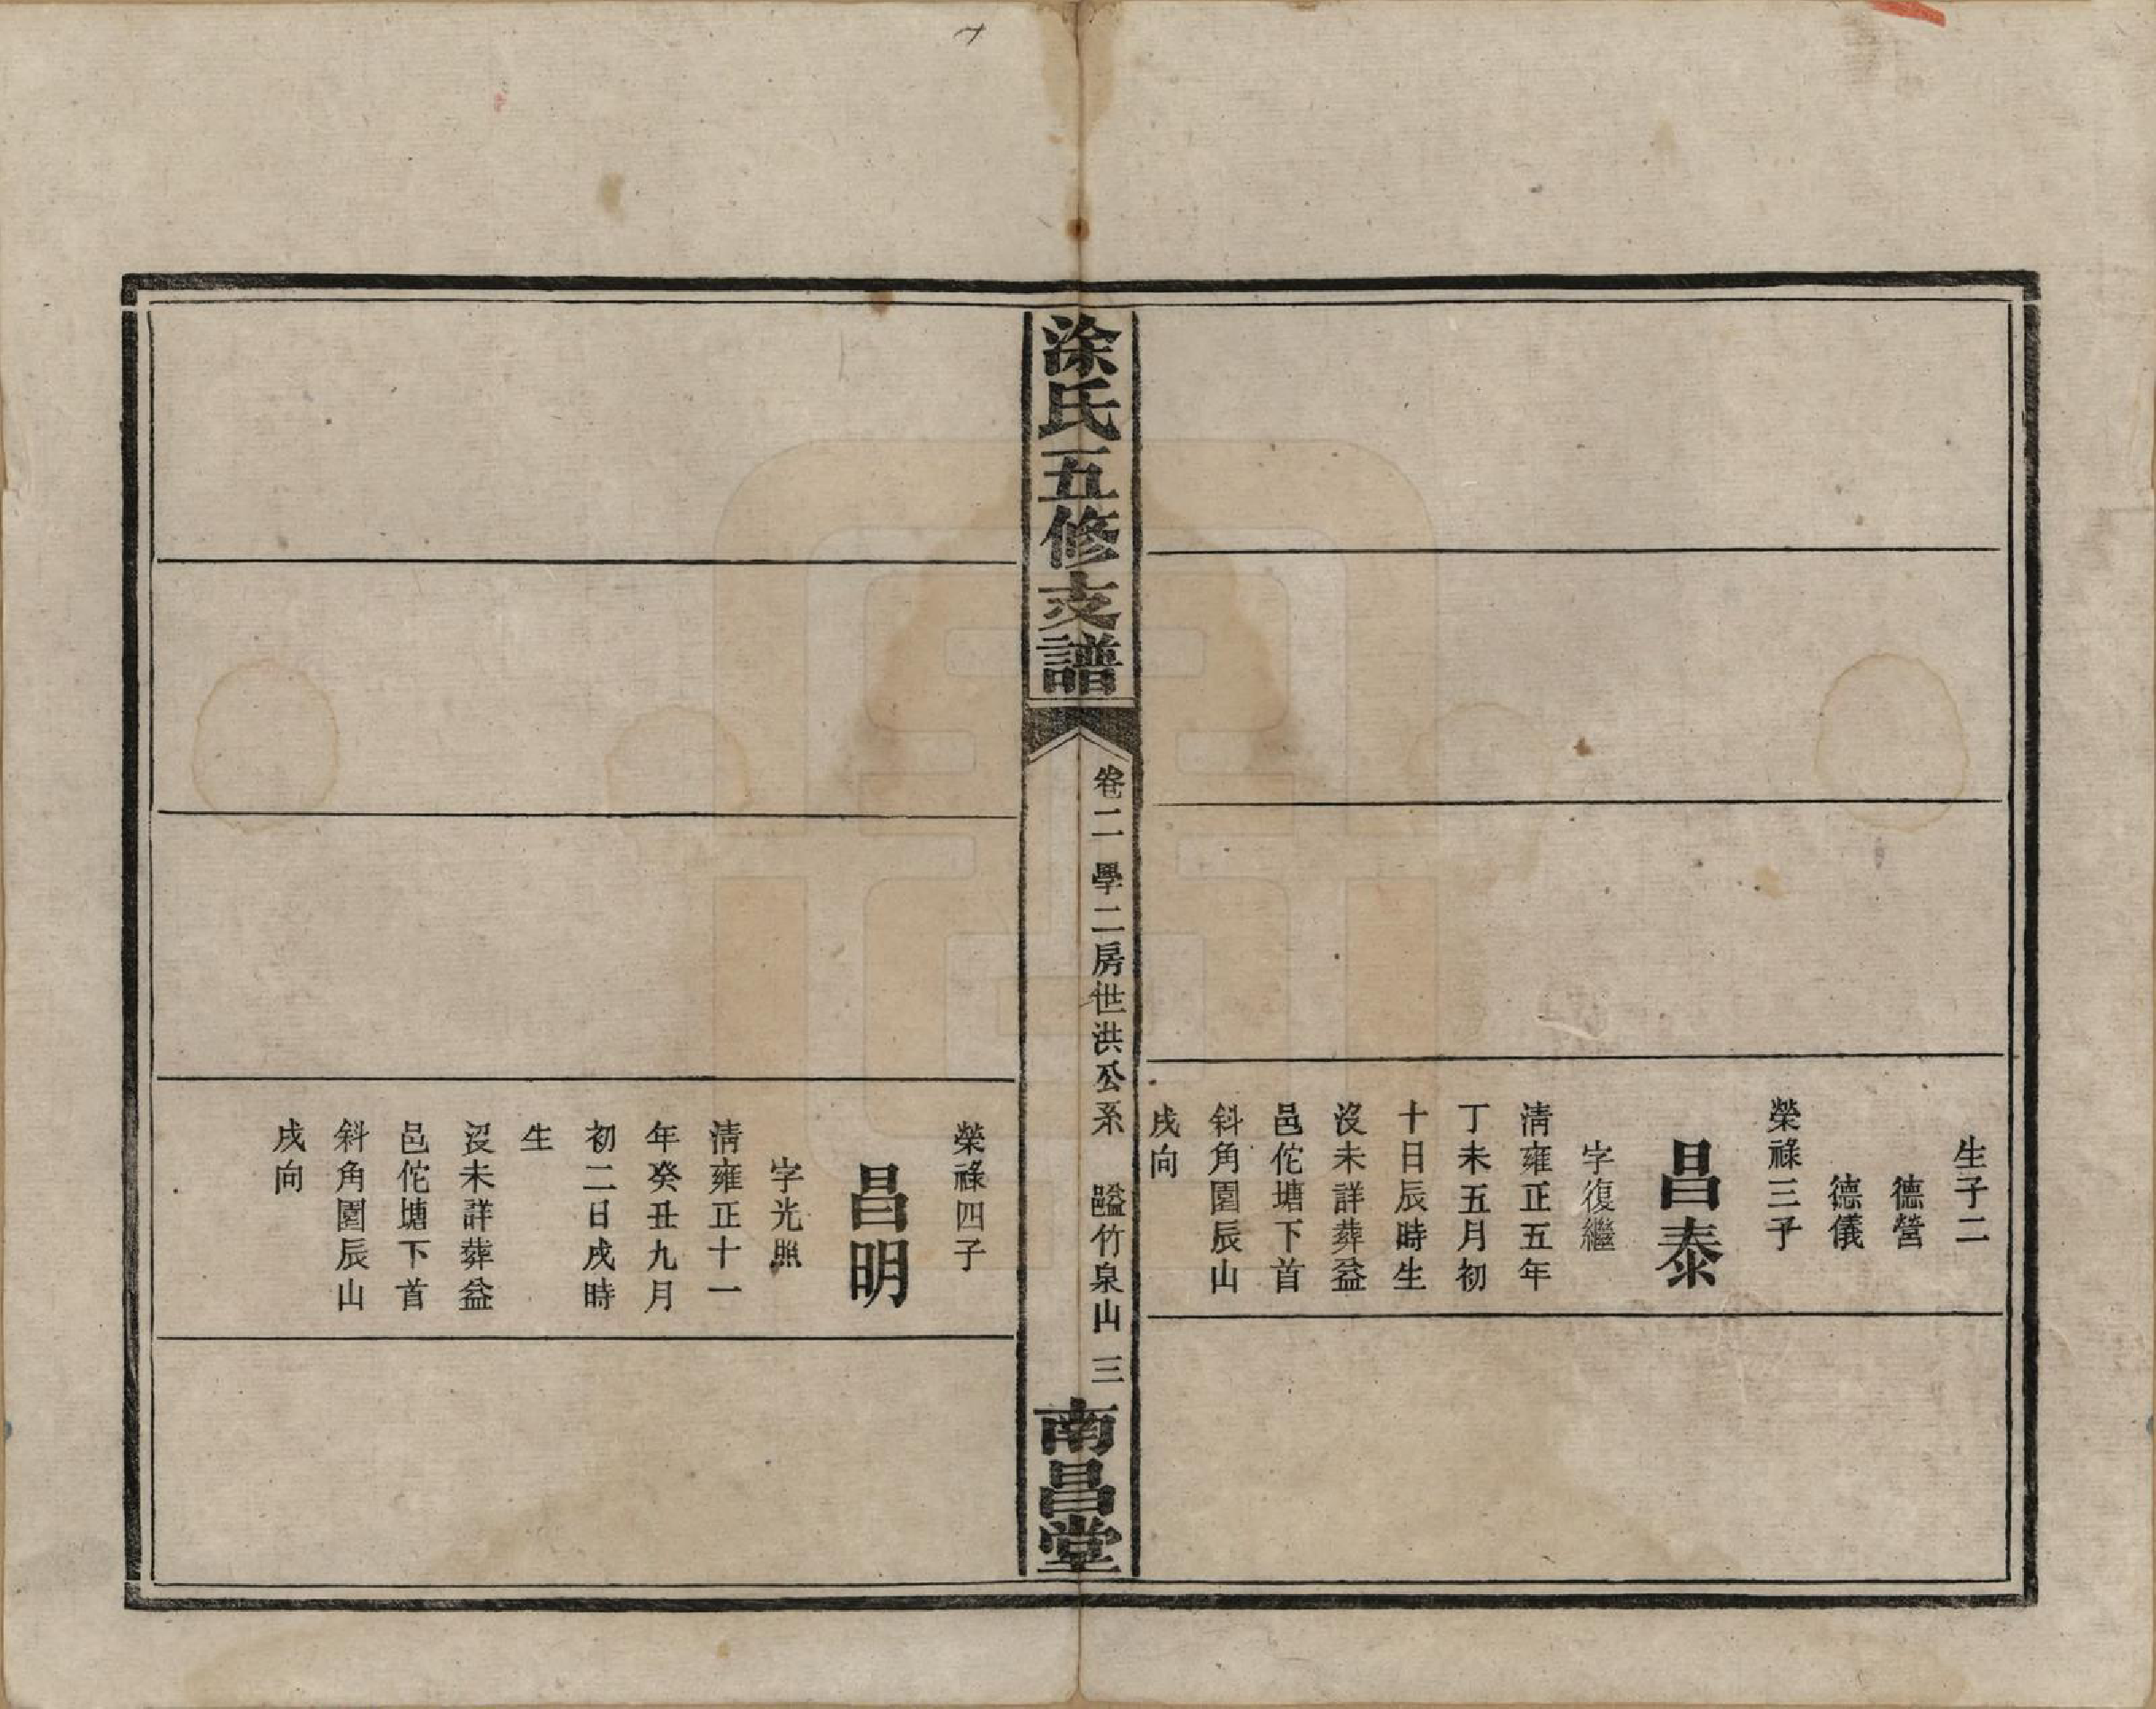 生子二
德營
德儀
榮祿三子
昌泰
字復繼
清雍正五年
丁未五月初
十日辰時生
沒未詳葬益
邑佗塘下首
斜角園辰山
戌向
涂氏五修支譜
卷二 學二房世洪公系 竹泉山 三
南昌堂
榮祿四子
昌明
字光照
清雍正十一
年癸丑九月
初二日戌時
生
沒未詳葬益
邑佗塘下首
斜角園辰山
戌向